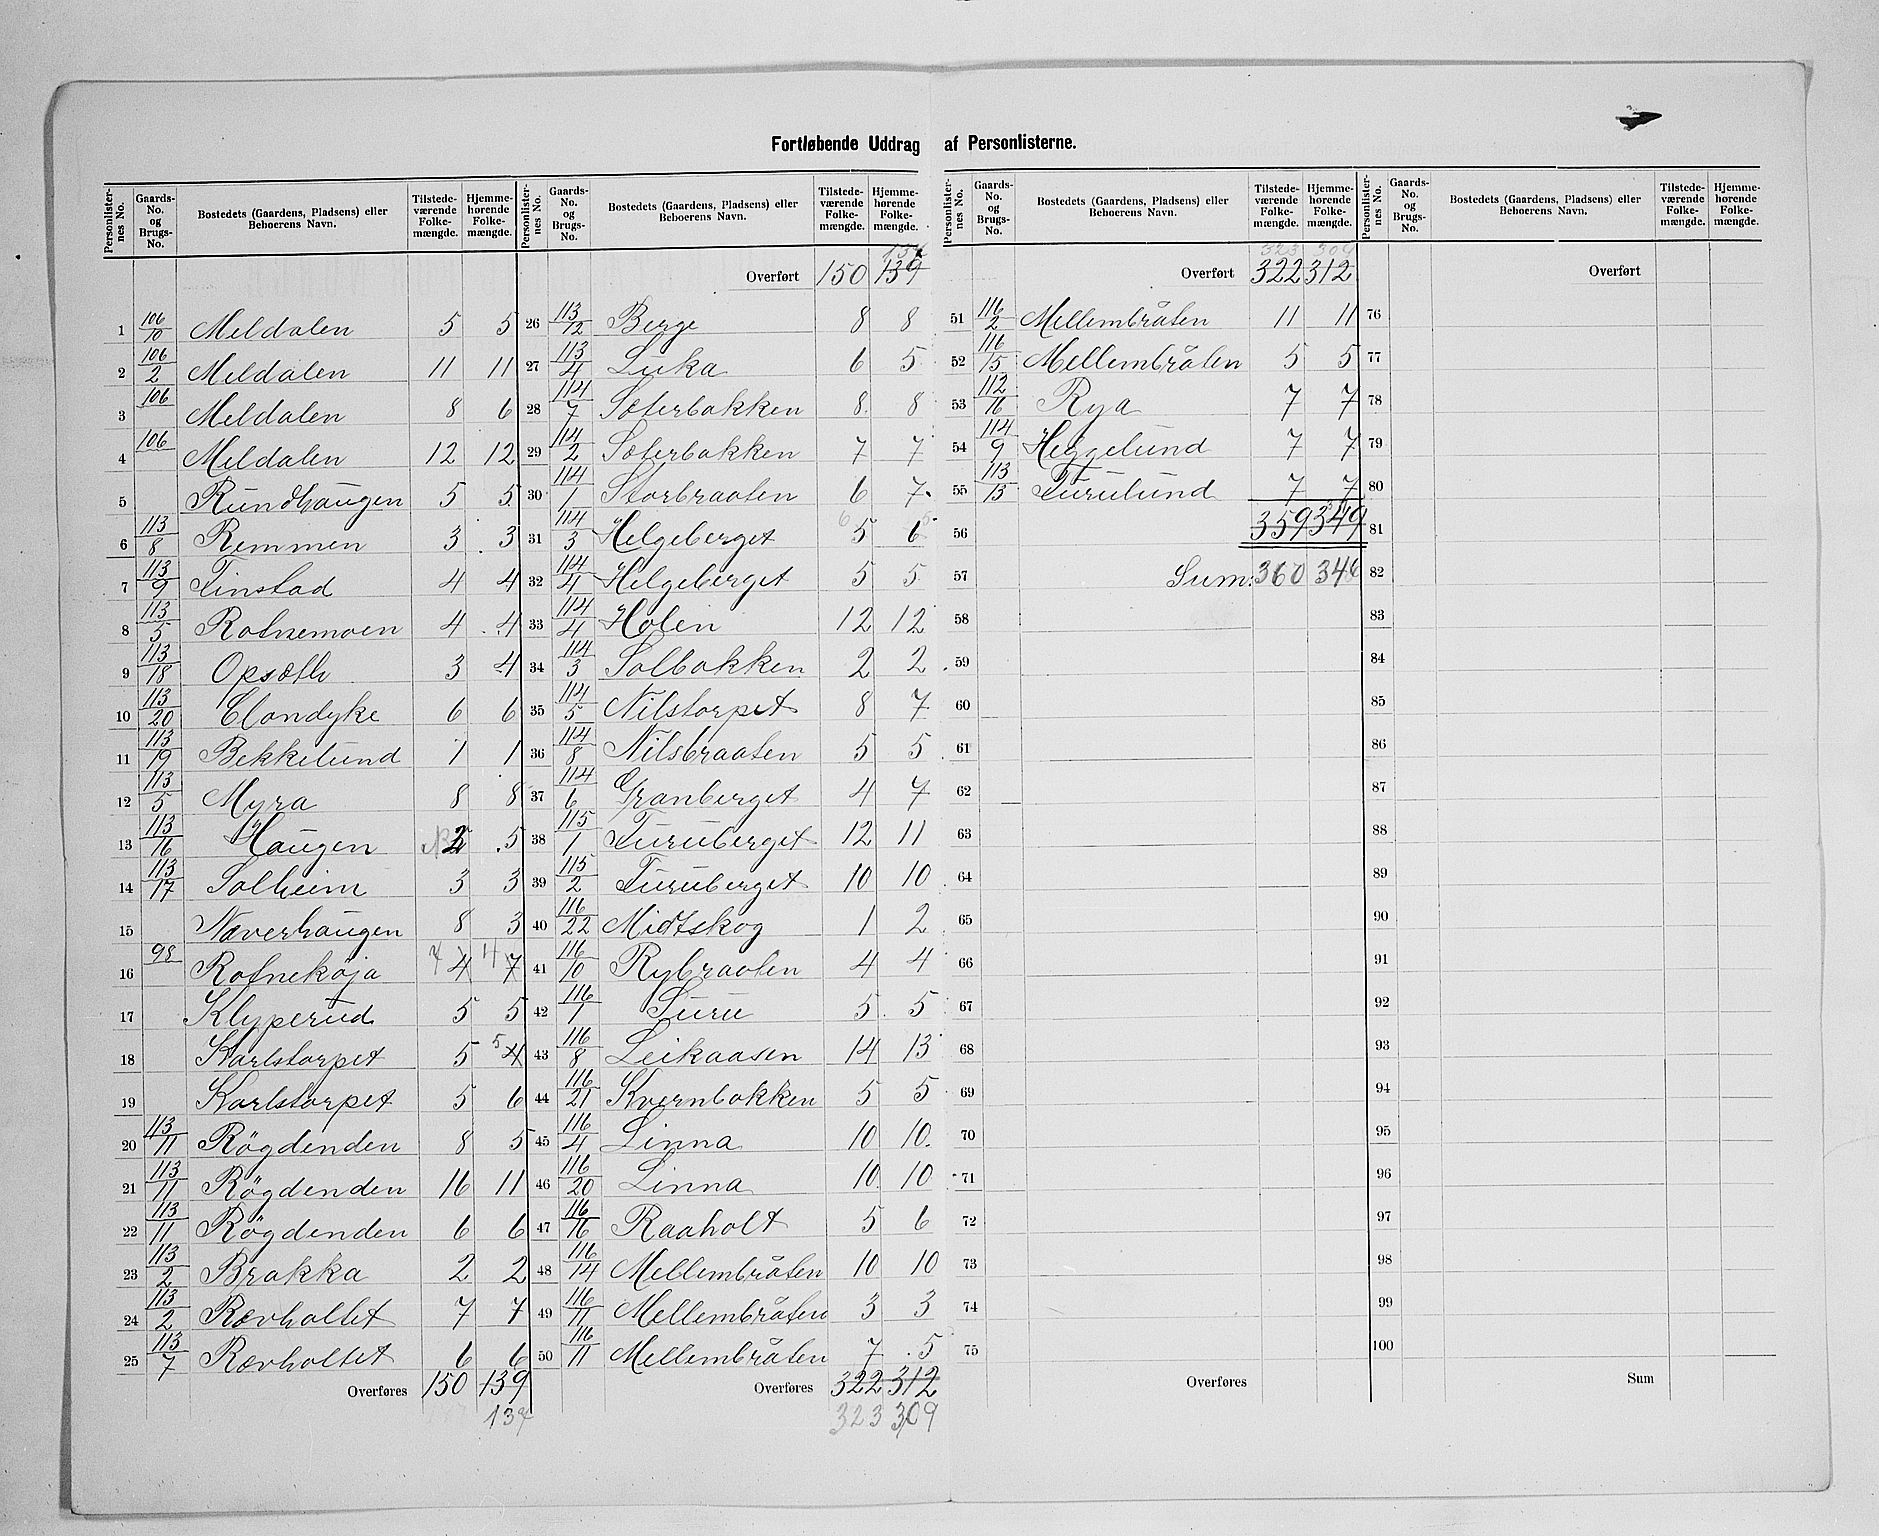 Fortløbende Uddrag af Personlisterne.
Personlister-nes No. | Gaards-No. og Brugs-No. | Bostedets (Gaardens, Pladsens) eller Beboerens Navn. | Tilstede-værende Folke-mængde. | Hjemme-hørende Folke-mængde.
1 106/10 Meldalen 5 5
2 106/2 Meldalen 11 11
3 106 Meldalen 8 6
4 106 Meldalen 12 12
5 Rundhaugen 5 5
6 113/8 Remmen 3 3
7 113/9 Finstad 4 4
8 113/5 Rotnemoen 4 4
9 113/18 Opsæth 3 4
10 113/20 Clondyke 6 6
11 113/19 Bekkelund 1 1
12 113/5 Myra 8 8
13 113/16 Haugen 5
14 113/17 Solheim 3 3
15 Næverhaugen 8 3
16 98 Rotnekøja 7 4 4 7
17 Klyperud 5 5
18 Karlstorpet 5 5 4
19 Karlstorpet 5 6
20 113/11 Rögdenden 8 5
21 113/11 Rögdenden 16 11
22 113/11 Rögdenden 6 6
23 113/2 Brakka 2 2
24 113/2 Rævholtet 7 7
25 113/7 Rævholtet 6 6
Overføres 150 139
137
Personlister-nes No. | Gaards-No. og Brugs-No. | Bostedets (Gaardens, Pladsens) eller Beboerens Navn. | Tilstede-værende Folke-mængde. | Hjemme-hørende Folke-mængde.
137
Overført 150 139
26 113/12 Berge 8 8
27 113/4 Luka 6 5
28 114/7 Sæterbakken 8 8
29 114/2 Sæterbakken 7 7
30 114/1 Storbraaten 6 7
31 114/3 Helgeberget 6 5 6
32 114/4 Helgeberget 5 5
33 114/4 Holen 12 12
34 114/3 Solbakken 2 2
35 114/5 Nilstorpet 8 7
36 114/8 Nilsbraaten 5 5
37 114/6 Granberget 4 7
38 115/1 Furuberget 12 11
39 115/2 Furuberget 10 10
40 116/22 Midtskog 1 2
41 116/10 Rybraaten 4 4
42 116/1 Furu 5 5
43 116/8 Leikaasen 14 13
44 116/21 Kvernbakken 5 5
45 116/4 Linna 10 10
46 116/20 Linna 10 10
47 116/16 Raaholt 5 6
48 116/14 Mellembråten 10 10
49 116/11 Mellembråten 3 3
50 116/11 Mellembråten 7 5
Overføres 322 312
323 309
Personlister-nes No. | Gaards-No. og Brugs-No. | Bostedets (Gaardens, Pladsens) eller Beboerens Navn. | Tilstede-værende Folke-mængde. | Hjemme-hørende Folke-mængde.
323 309
Overført 322 312
51 116/2 Mellembråten 11 11
52 116/15 Mellembråten 5 5
53 112/16 Rya 7 7
54 114/9 Heggelund 7 7
55 113/15 Furulund 7 7
56 359 349
57 Sum: 360 346
58
59
60
61
62
63
64
65
66
67
68
69
70
71
72
73
74
75
Overføres
Personlister-nes No. | Gaards-No. og Brugs-No. | Bostedets (Gaardens, Pladsens) eller Beboerens Navn. | Tilstede-værende Folke-mængde. | Hjemme-hørende Folke-mængde.
Overført
76
77
78
79
80
81
82
83
84
85
86
87
88
89
90
91
92
93
94
95
96
97
98
99
100
Sum